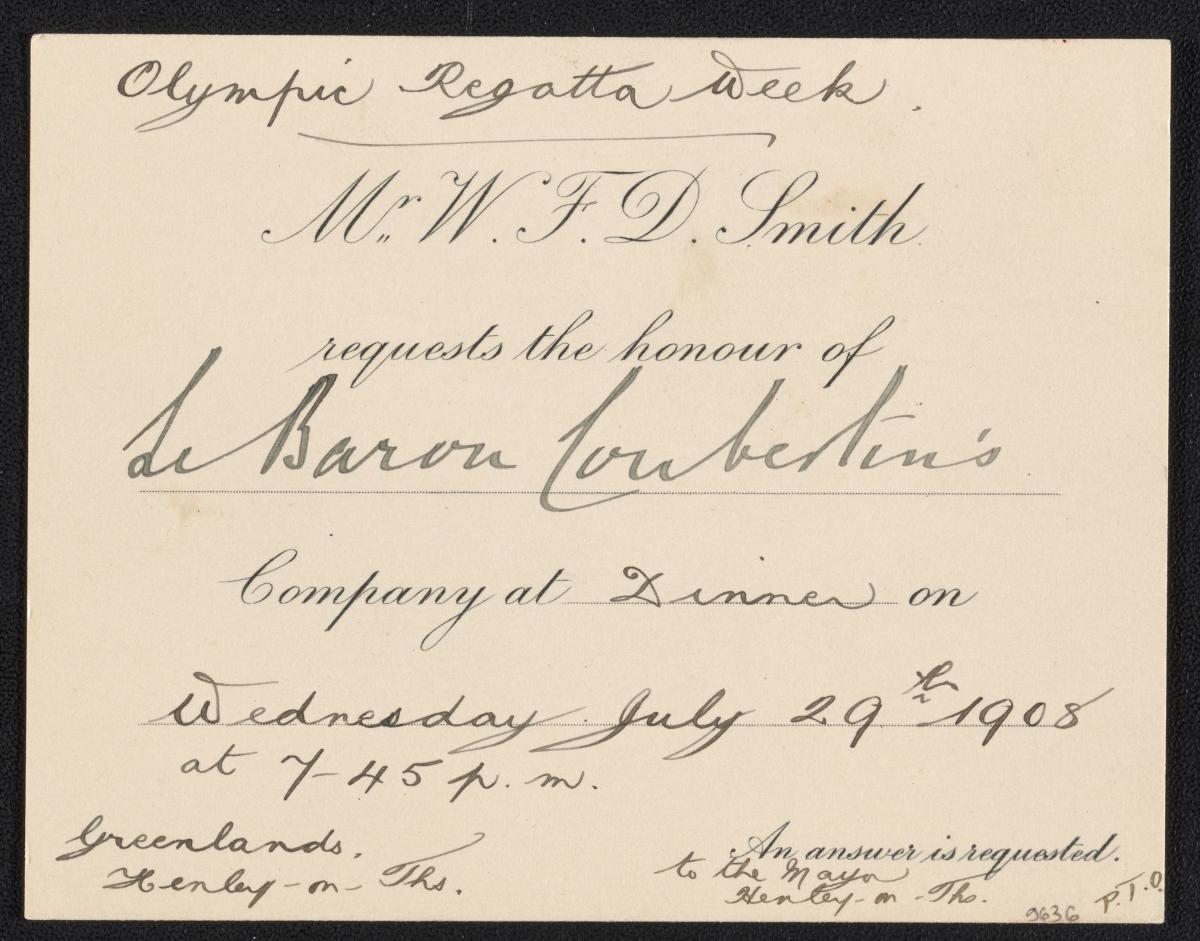 Olympic Regatta Week.
Mr. W. F. D. Smith
requests the honour of
Le Baron Coubertin's
Company at Dinner on
Wednesday July 29th 1908
at 7-45 p.m.
Greenlands.
Henley-on-Ths.
An answer is requested.
to the Mayor
Henley-on-Ths.
P.T.O.
9636